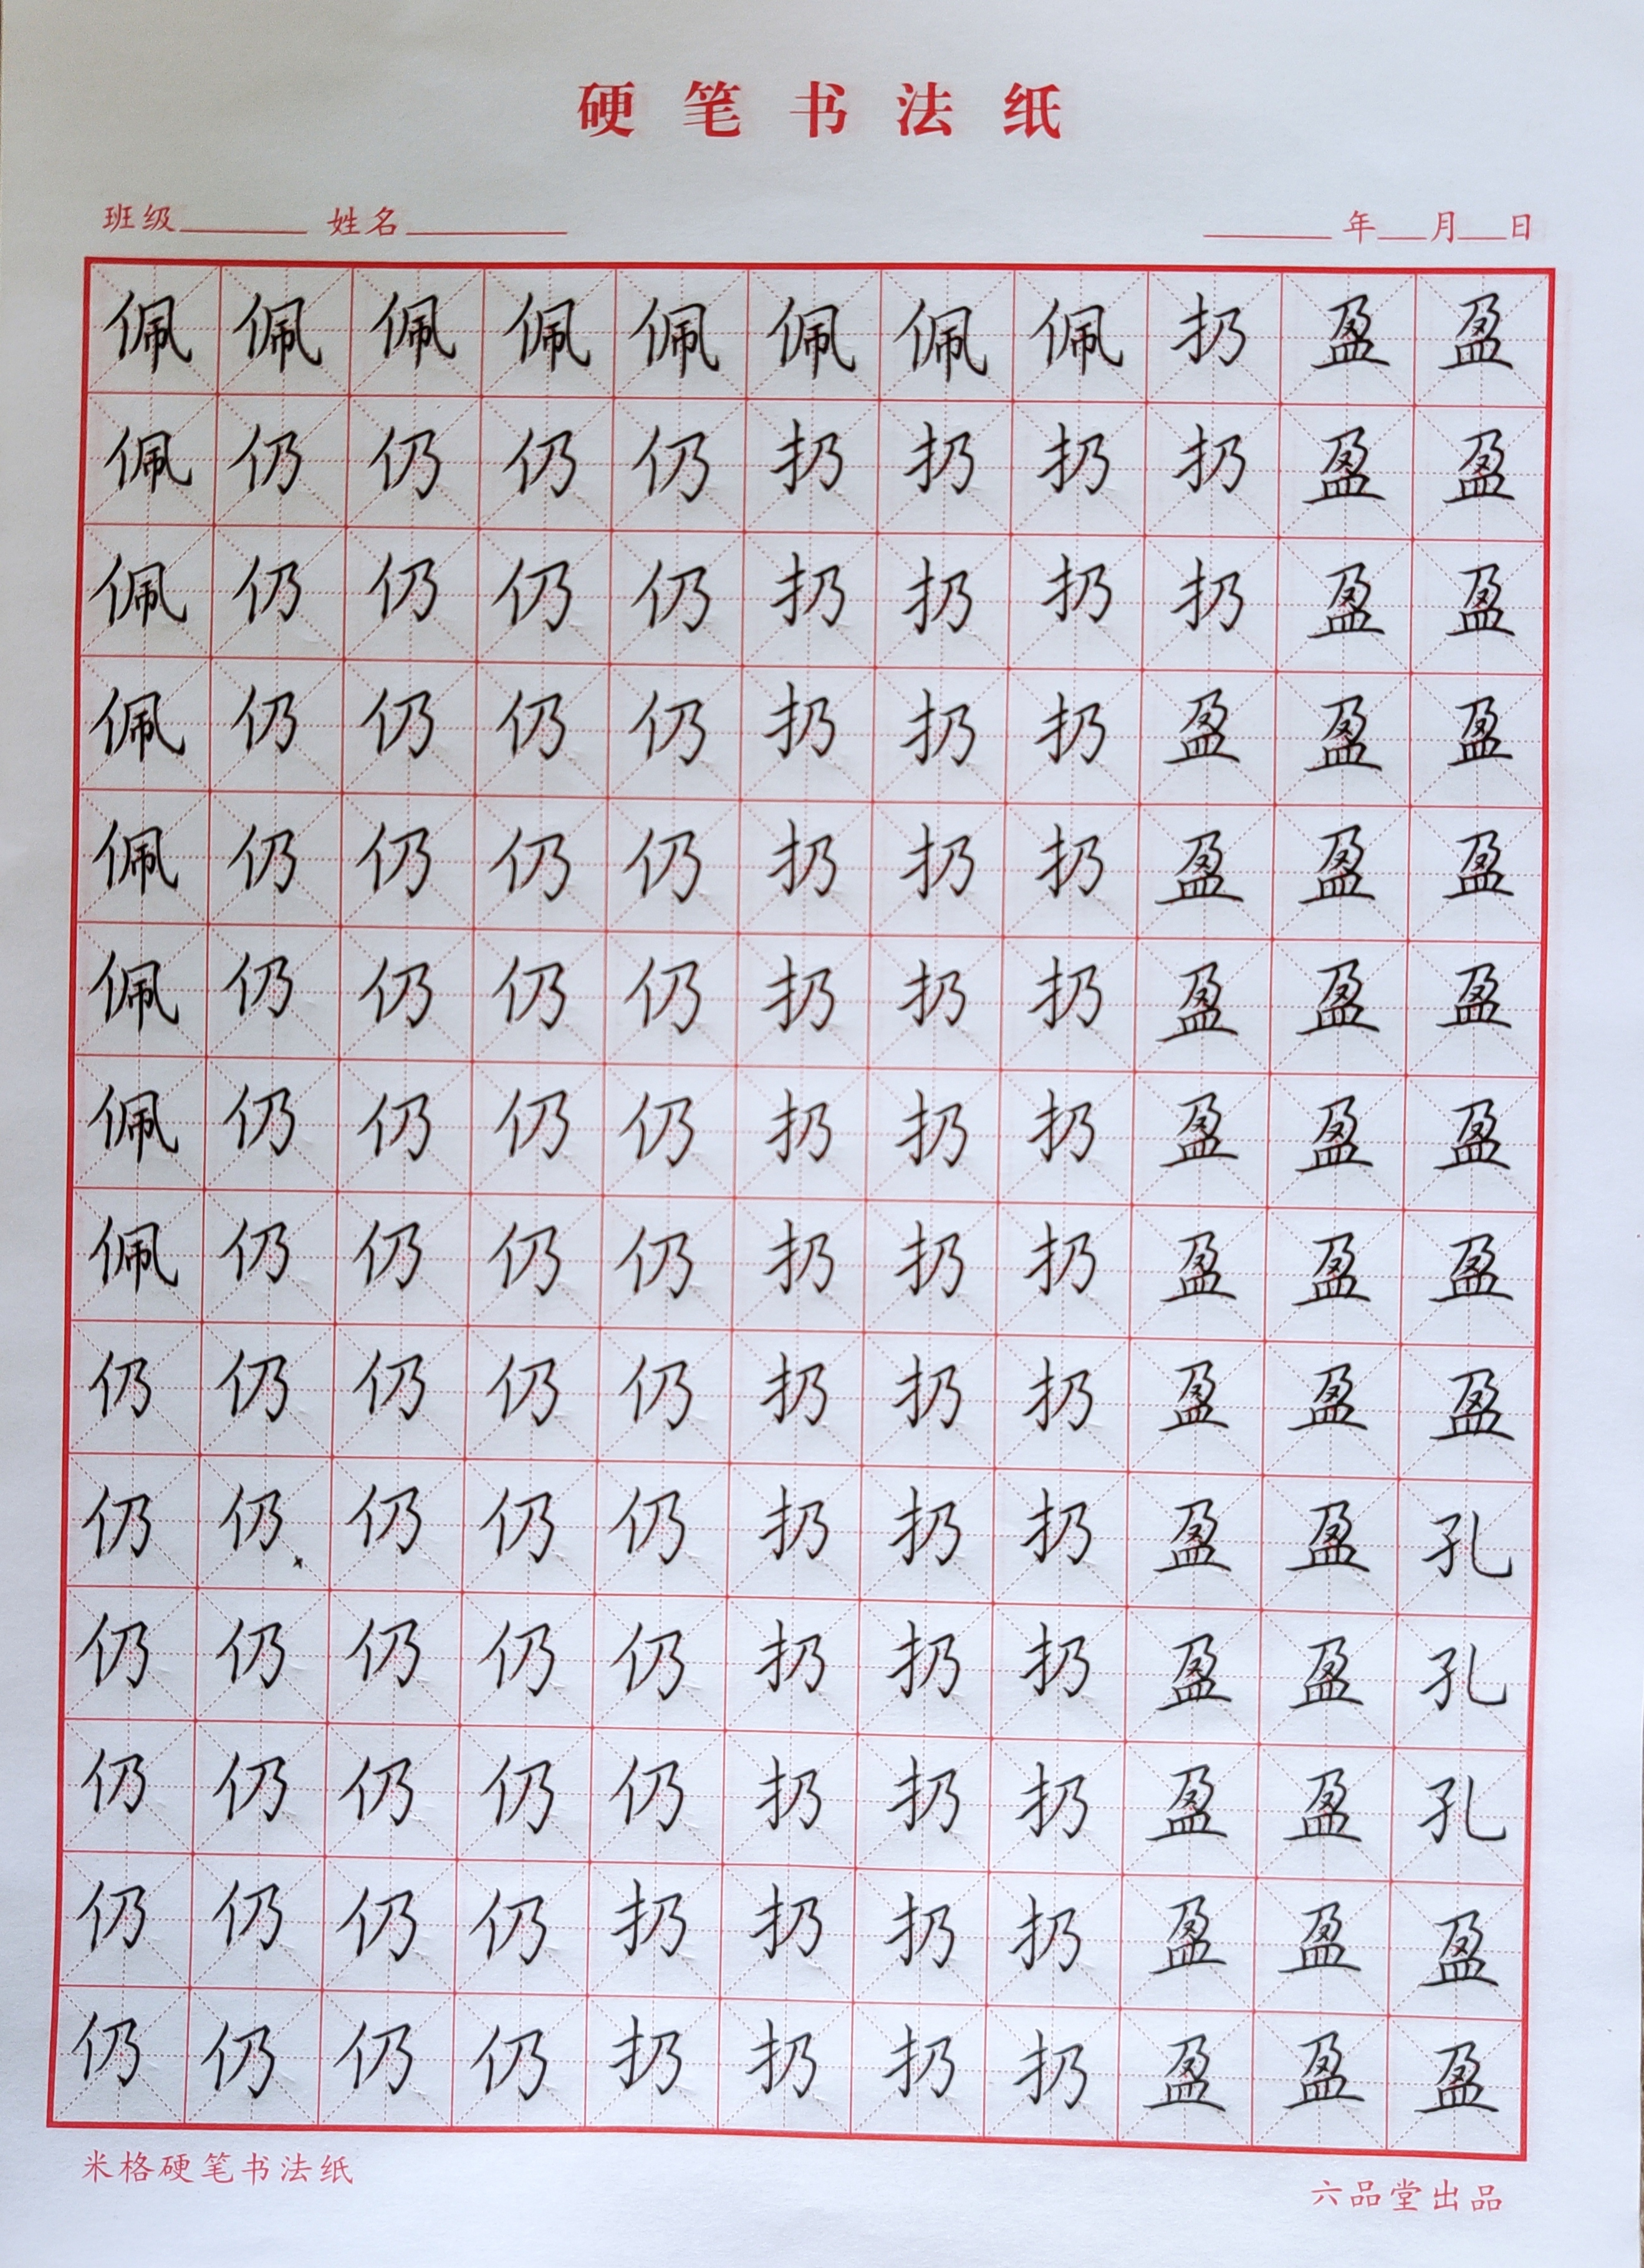 硬笔书法纸
班级 姓名 年 月 日
佩佩佩佩佩佩佩佩扔盈盈
佩仍仍仍仍扔扔扔扔盈盈
佩仍仍仍仍扔扔扔扔盈盈
佩仍仍仍仍扔扔扔盈盈盈
佩仍仍仍仍扔扔扔盈盈盈
佩仍仍仍仍扔扔扔盈盈盈
佩仍仍仍仍扔扔扔盈盈盈
佩仍仍仍仍扔扔扔盈盈盈
仍仍仍仍仍扔扔扔盈盈盈
仍仍仍仍仍扔扔扔盈盈孔
仍仍仍仍仍扔扔扔盈盈孔
仍仍仍仍仍扔扔扔盈盈孔
仍仍仍仍扔扔扔扔盈盈盈
仍仍仍仍扔扔扔扔盈盈盈
米格硬笔书法纸 六品堂出品